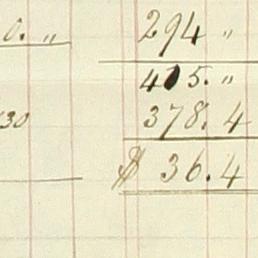 0. " 294 "
415. "
30 378. 4
$ 36. 4